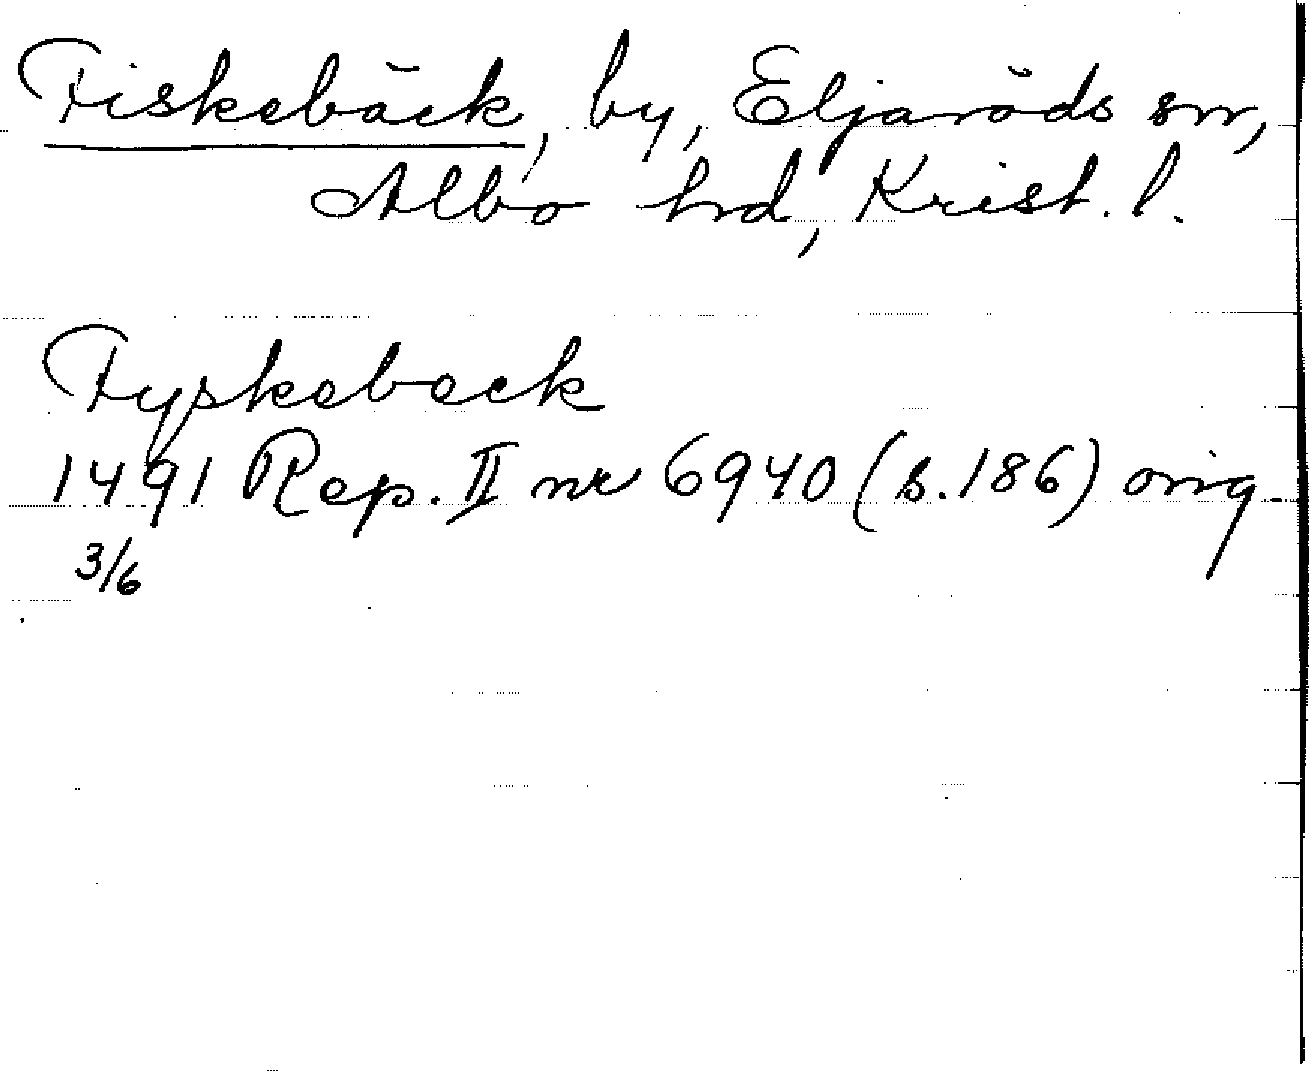 Fiskebäck, by, Eljaröds sn,
Albo hd, Krist. l.
Fyskebeck
1491 Rep. II nr 6940 (s. 186) orig.
3/6